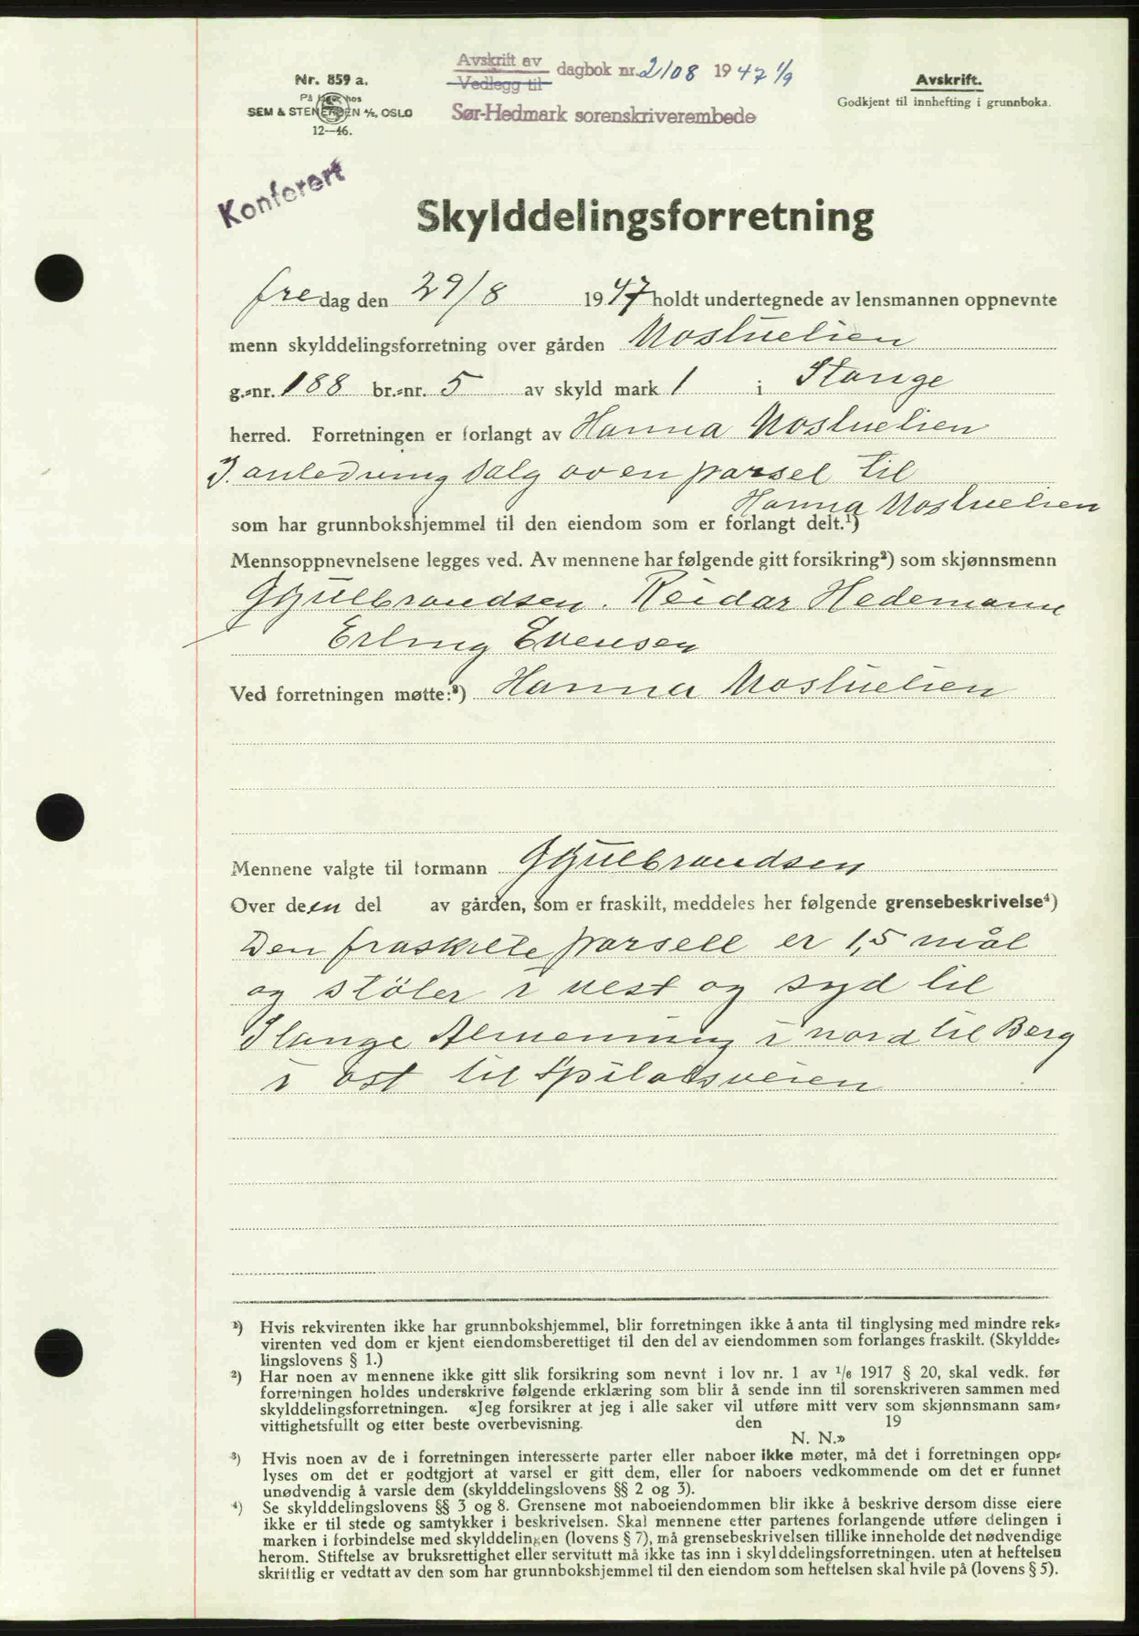 Avskrift av
Vedlegg til
dagbok nr. 2108 1947 1/9
Sør-Hedmark sorenskriverembede
Nr. 859 a.
På lager hos
SEM & STENERSEN A/S, OSLO
12—46.
Avskrift.
Godkjent til innhefting i grunnboka.
Konferert
Skylddelingsforretning
fredag den 29/8 1947 holdt undertegnede av lensmannen oppnevnte
menn skylddelingsforretning over gården Moshuelien
g.-nr. 188 br.-nr. 5 av skyld mark 1 i Stange
herred. Forretningen er forlangt av Hanna Moshuelien
I anledning salg av en parsel til
Hanna Moshuelien
som har grunnbokshjemmel til den eiendom som er forlangt delt.¹)
Mennsoppnevnelsene legges ved. Av mennene har følgende gitt forsikring²) som skjønnsmenn
G Gulbrandsen. Reidar Hedemann
Erling Evensen
Ved forretningen møtte:³) Hanna Moshuelien
Mennene valgte til formann G Gulbrandsen
Over den del av gården, som er fraskilt, meddeles her følgende grensebeskrivelse⁴)
Den fraskilte parsell er 1,5 mål
og støter i vest og syd til
Stange Almenning i nord til Berg
i øst til
¹) Hvis rekvirenten ikke har grunnbokshjemmel, blir forretningen ikke å anta til tinglysing med mindre rek-
virenten ved dom er kjent eiendomsberettiget til den del av eiendommen som forlanges fraskilt. (Skyldde-
lingslovens § 1.)
²) Har noen av mennene ikke gitt slik forsikring som nevnt i lov nr. 1 av 1/6 1917 § 20, skal vedk. før
forretningen holdes underskrive følgende erklæring som blir å sende inn til sorenskriveren sammen med
skylddelingsforretningen. «Jeg forsikrer at jeg i alle saker vil utføre mitt verv som skjønnsmann sam-
vittighetsfullt og etter beste overbevisning. den 19
N. N.»
³) Hvis noen av de i forretningen interesserte parter eller naboer ikke møter, må det i forretningen opp-
lyses om det er godtgjort at varsel er gitt dem, eller for naboers vedkommende om det er funnet
unødvendig å varsle dem (skylddelingslovens §§ 2 og 3).
⁴) Se skylddelingslovens §§ 3 og 8. Grensene mot naboeiendommen blir ikke å beskrive dersom disse eiere
ikke er til stede og samtykker i beskrivelsen. Skal mennene etter partenes forlangende utføre delingen i
marken i forbindelse med skylddelingen (lovens § 7), må grensebeskrivelsen tillike inneholde det nødvendige
herom. Stiftelse av bruksrettighet eller servitutt må ikke tas inn i skylddelingsforretningen, uten at heftelsen
skriftlig er vedtatt av den som har grunnbokshjemmel til den eiendom som heftelsen skal hvile på (lovens § 5).